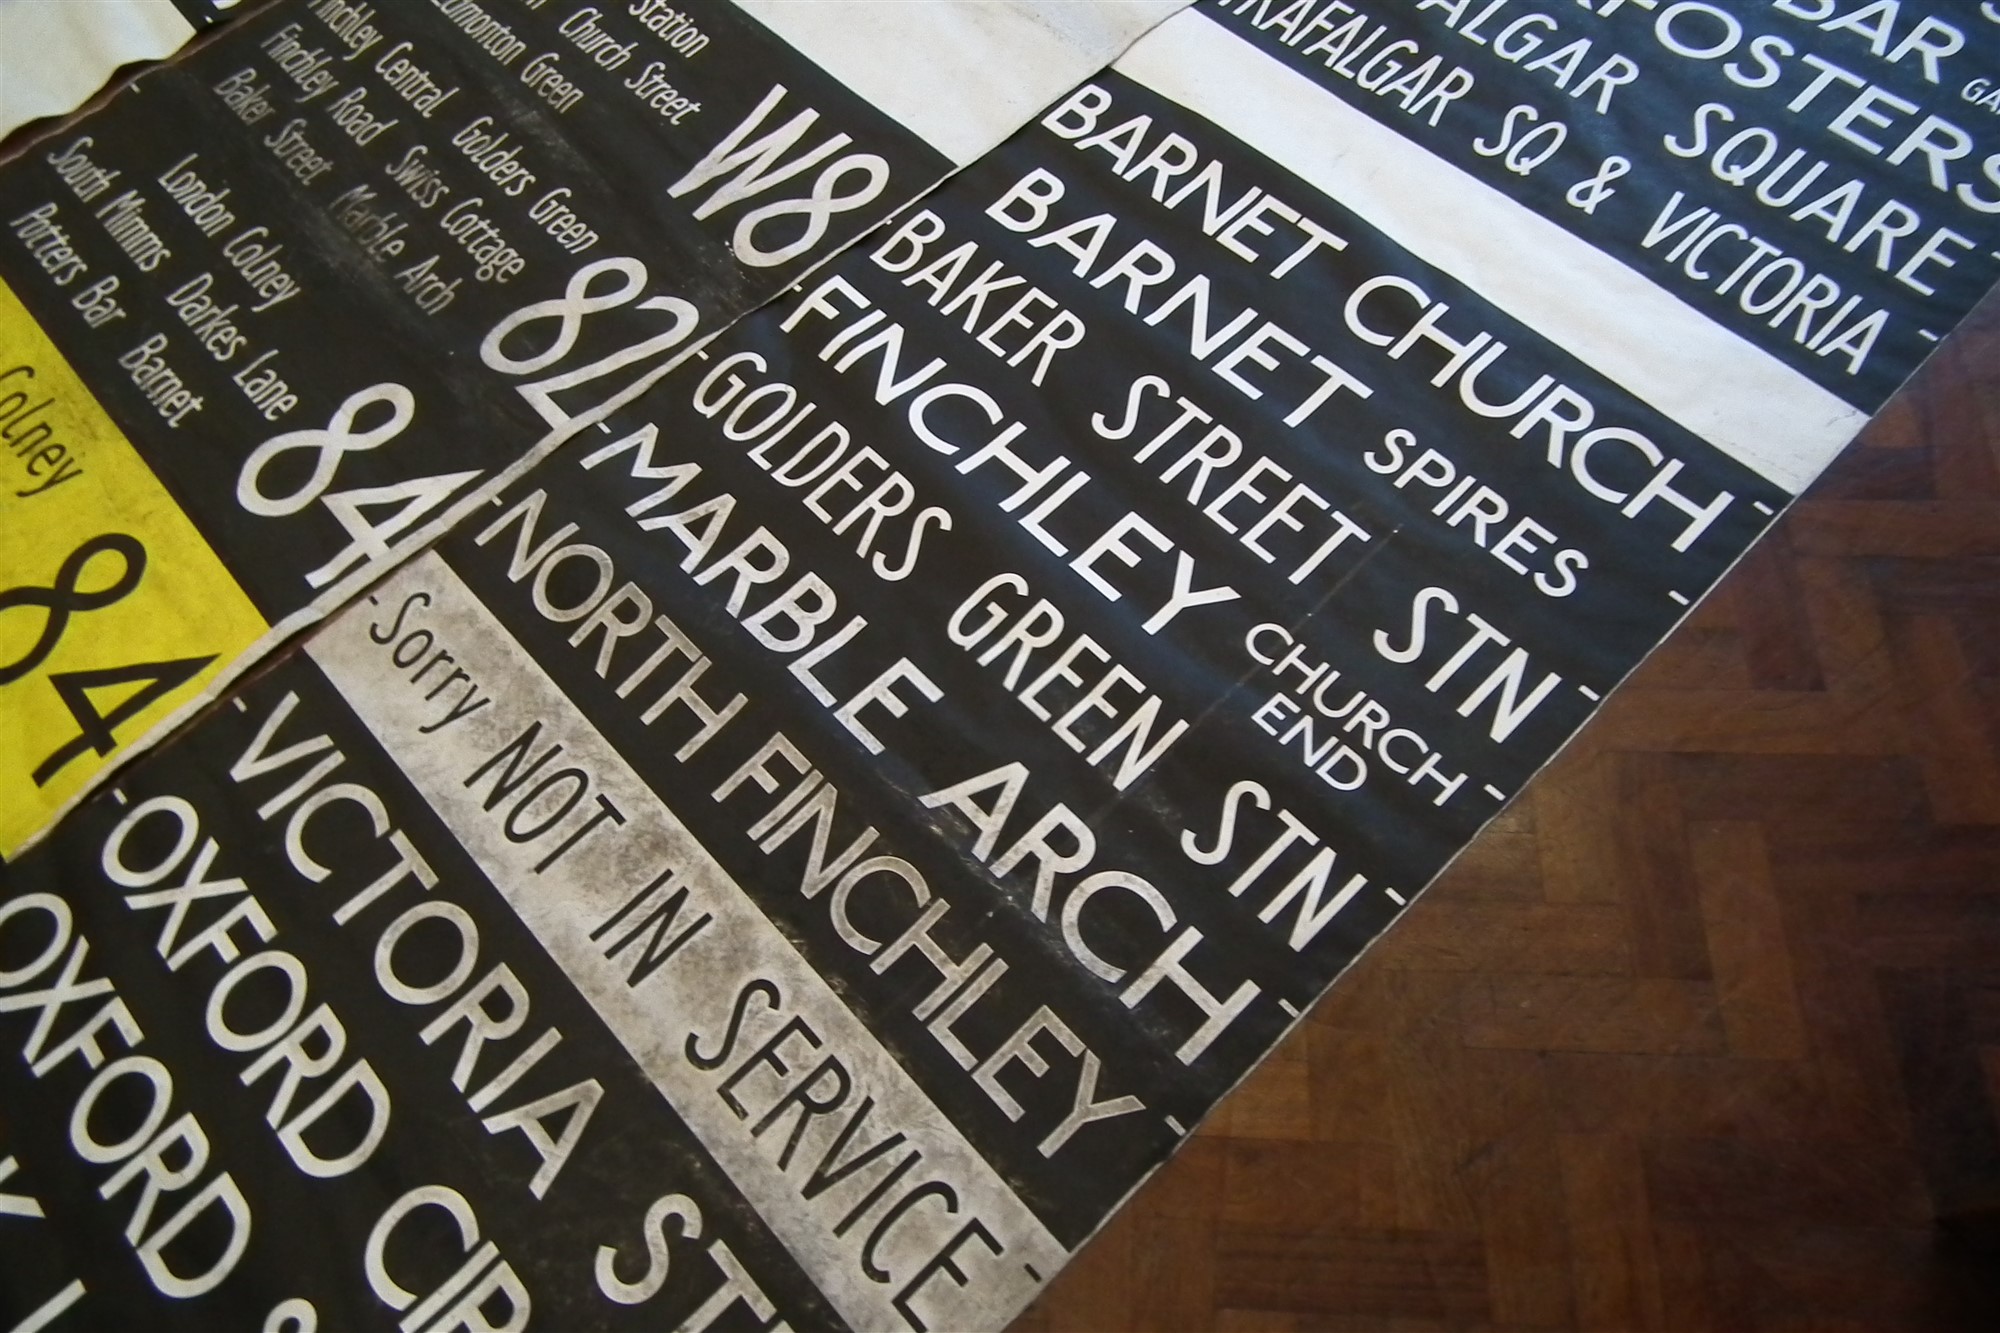 Station
Church Street
Edmonton Green
W8
Finchley Central Golders Green
Finchley Road Swiss Cottage
Baker Street Marble Arch
82
London Colney
South Mimms Darkes Lane
Potters Bar Barnet
84
Colney
84
BAR
FOSTERS
SQUARE
TRAFALGAR SQ & VICTORIA
BARNET CHURCH
BARNET SPIRES
BAKER STREET STN
FINCHLEY CHURCH END
GOLDERS GREEN STN
MARBLE ARCH
NORTH FINCHLEY
Sorry NOT IN SERVICE
VICTORIA
OXFORD
OXFORD